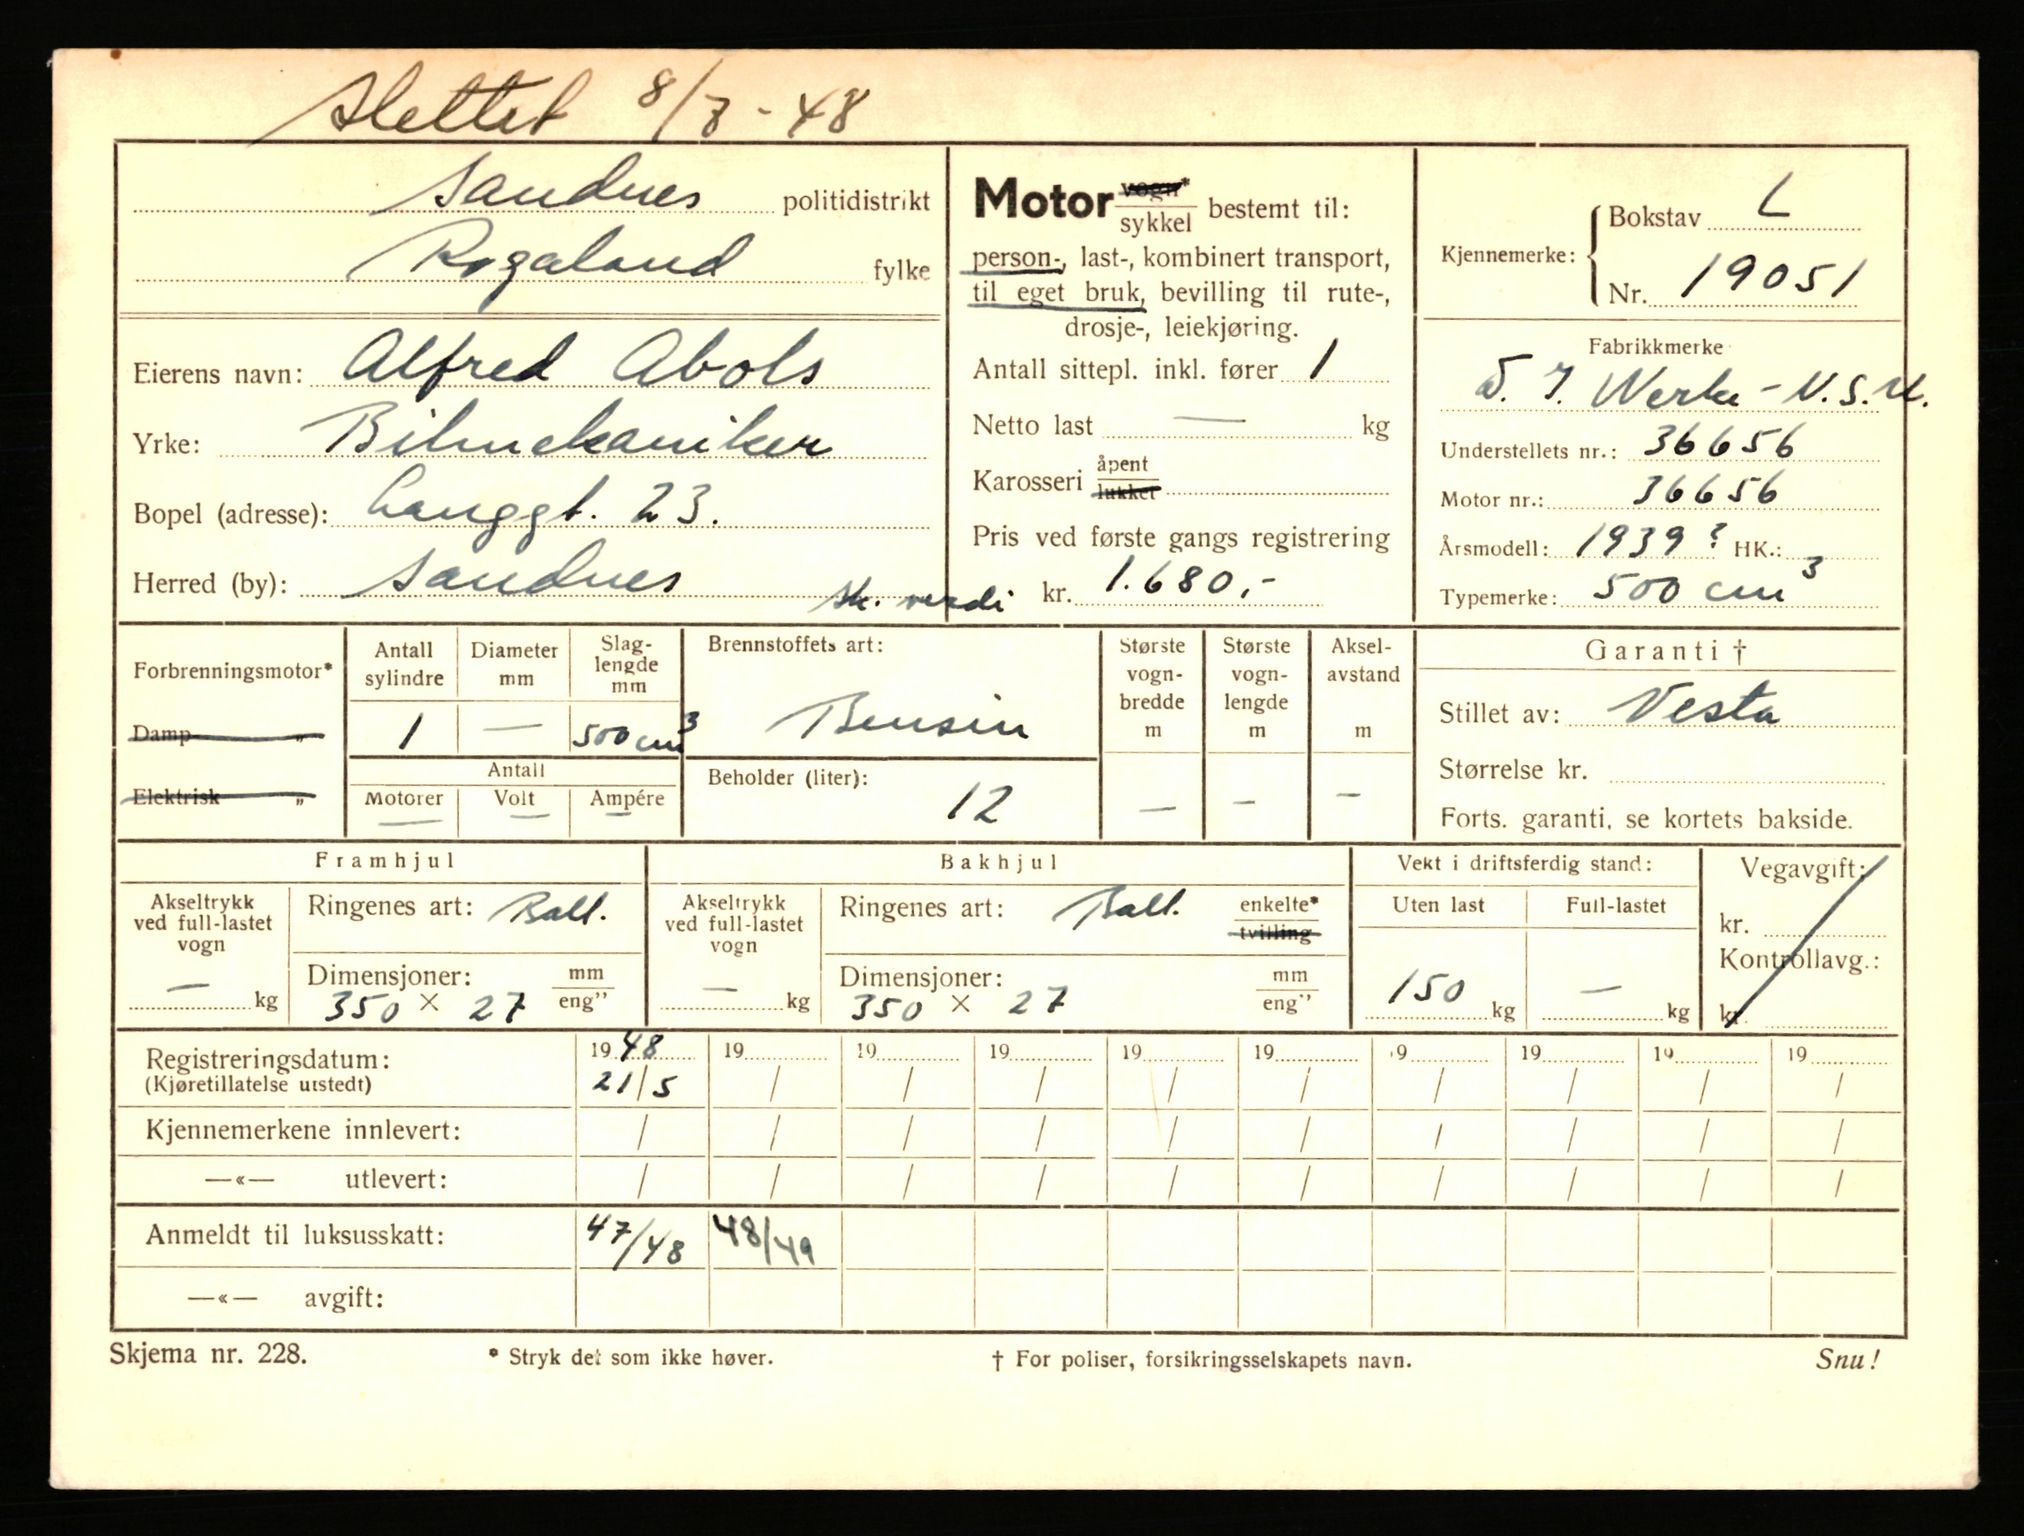 Slettet 8/7-48
Sandnes politidistrikt
Rogaland fylke
Eierens navn: Alfred Abols
Yrke: Bilmekaniker
Bopel (adresse): Langgt. 23.
Herred (by): Sandnes
Motor vogn* / sykkel bestemt til:
person-, last-, kombinert transport,
til eget bruk, bevilling til rute-,
drosje-, leiekjøring.
Antall sittepl. inkl. fører 1
Netto last — kg
Karosseri åpent / lukket
Pris ved første gangs registrering
sk. verdi kr. 1.680,-
Kjennemerke: Bokstav L
Nr. 19051
Fabrikkmerke
Werke - N.S.U.
Understellets nr.: 36656
Motor nr.: 36656
Årsmodell: 1939? HK.:
Typemerke: 500 cm³
Forbrenningsmotor*
Damp- „
Elektrisk „
Antall sylindre Diameter mm Slaglengde mm
1 — 500 cm³
Antall
Motorer Volt Ampére
— — —
Brennstoffets art:
Bensin
Beholder (liter):
12
Største vognbredde m Største vognlengde m Akselavstand m
— — —
Garanti †
Stillet av: Vesta
Størrelse kr.
Forts. garanti, se kortets bakside.
Framhjul
Akseltrykk ved full-lastet vogn
— kg
Ringenes art: Ball.
Dimensjoner: mm / eng”
350 × 27
Bakhjul
Akseltrykk ved full-lastet vogn
— kg
Ringenes art: Ball. enkelte* / tvilling
Dimensjoner: mm / eng”
350 × 27
Vekt i driftsferdig stand:
Uten last Full-lastet
150 kg — kg
Vegavgift:
kr.
Kontrollavg.:
kr.
Registreringsdatum: 1948 19 19 19 19 19 19 19 19 19
(Kjøretillatelse utstedt) 21/5 / / / / / / / / /
Kjennemerkene innlevert: / / / / / / / / / /
—«— utlevert: / / / / / / / / / /
Anmeldt til luksusskatt: 47/48 48/49
—«— avgift:
Skjema nr. 228. * Stryk det som ikke høver. † For poliser, forsikringsselskapets navn. Snu!